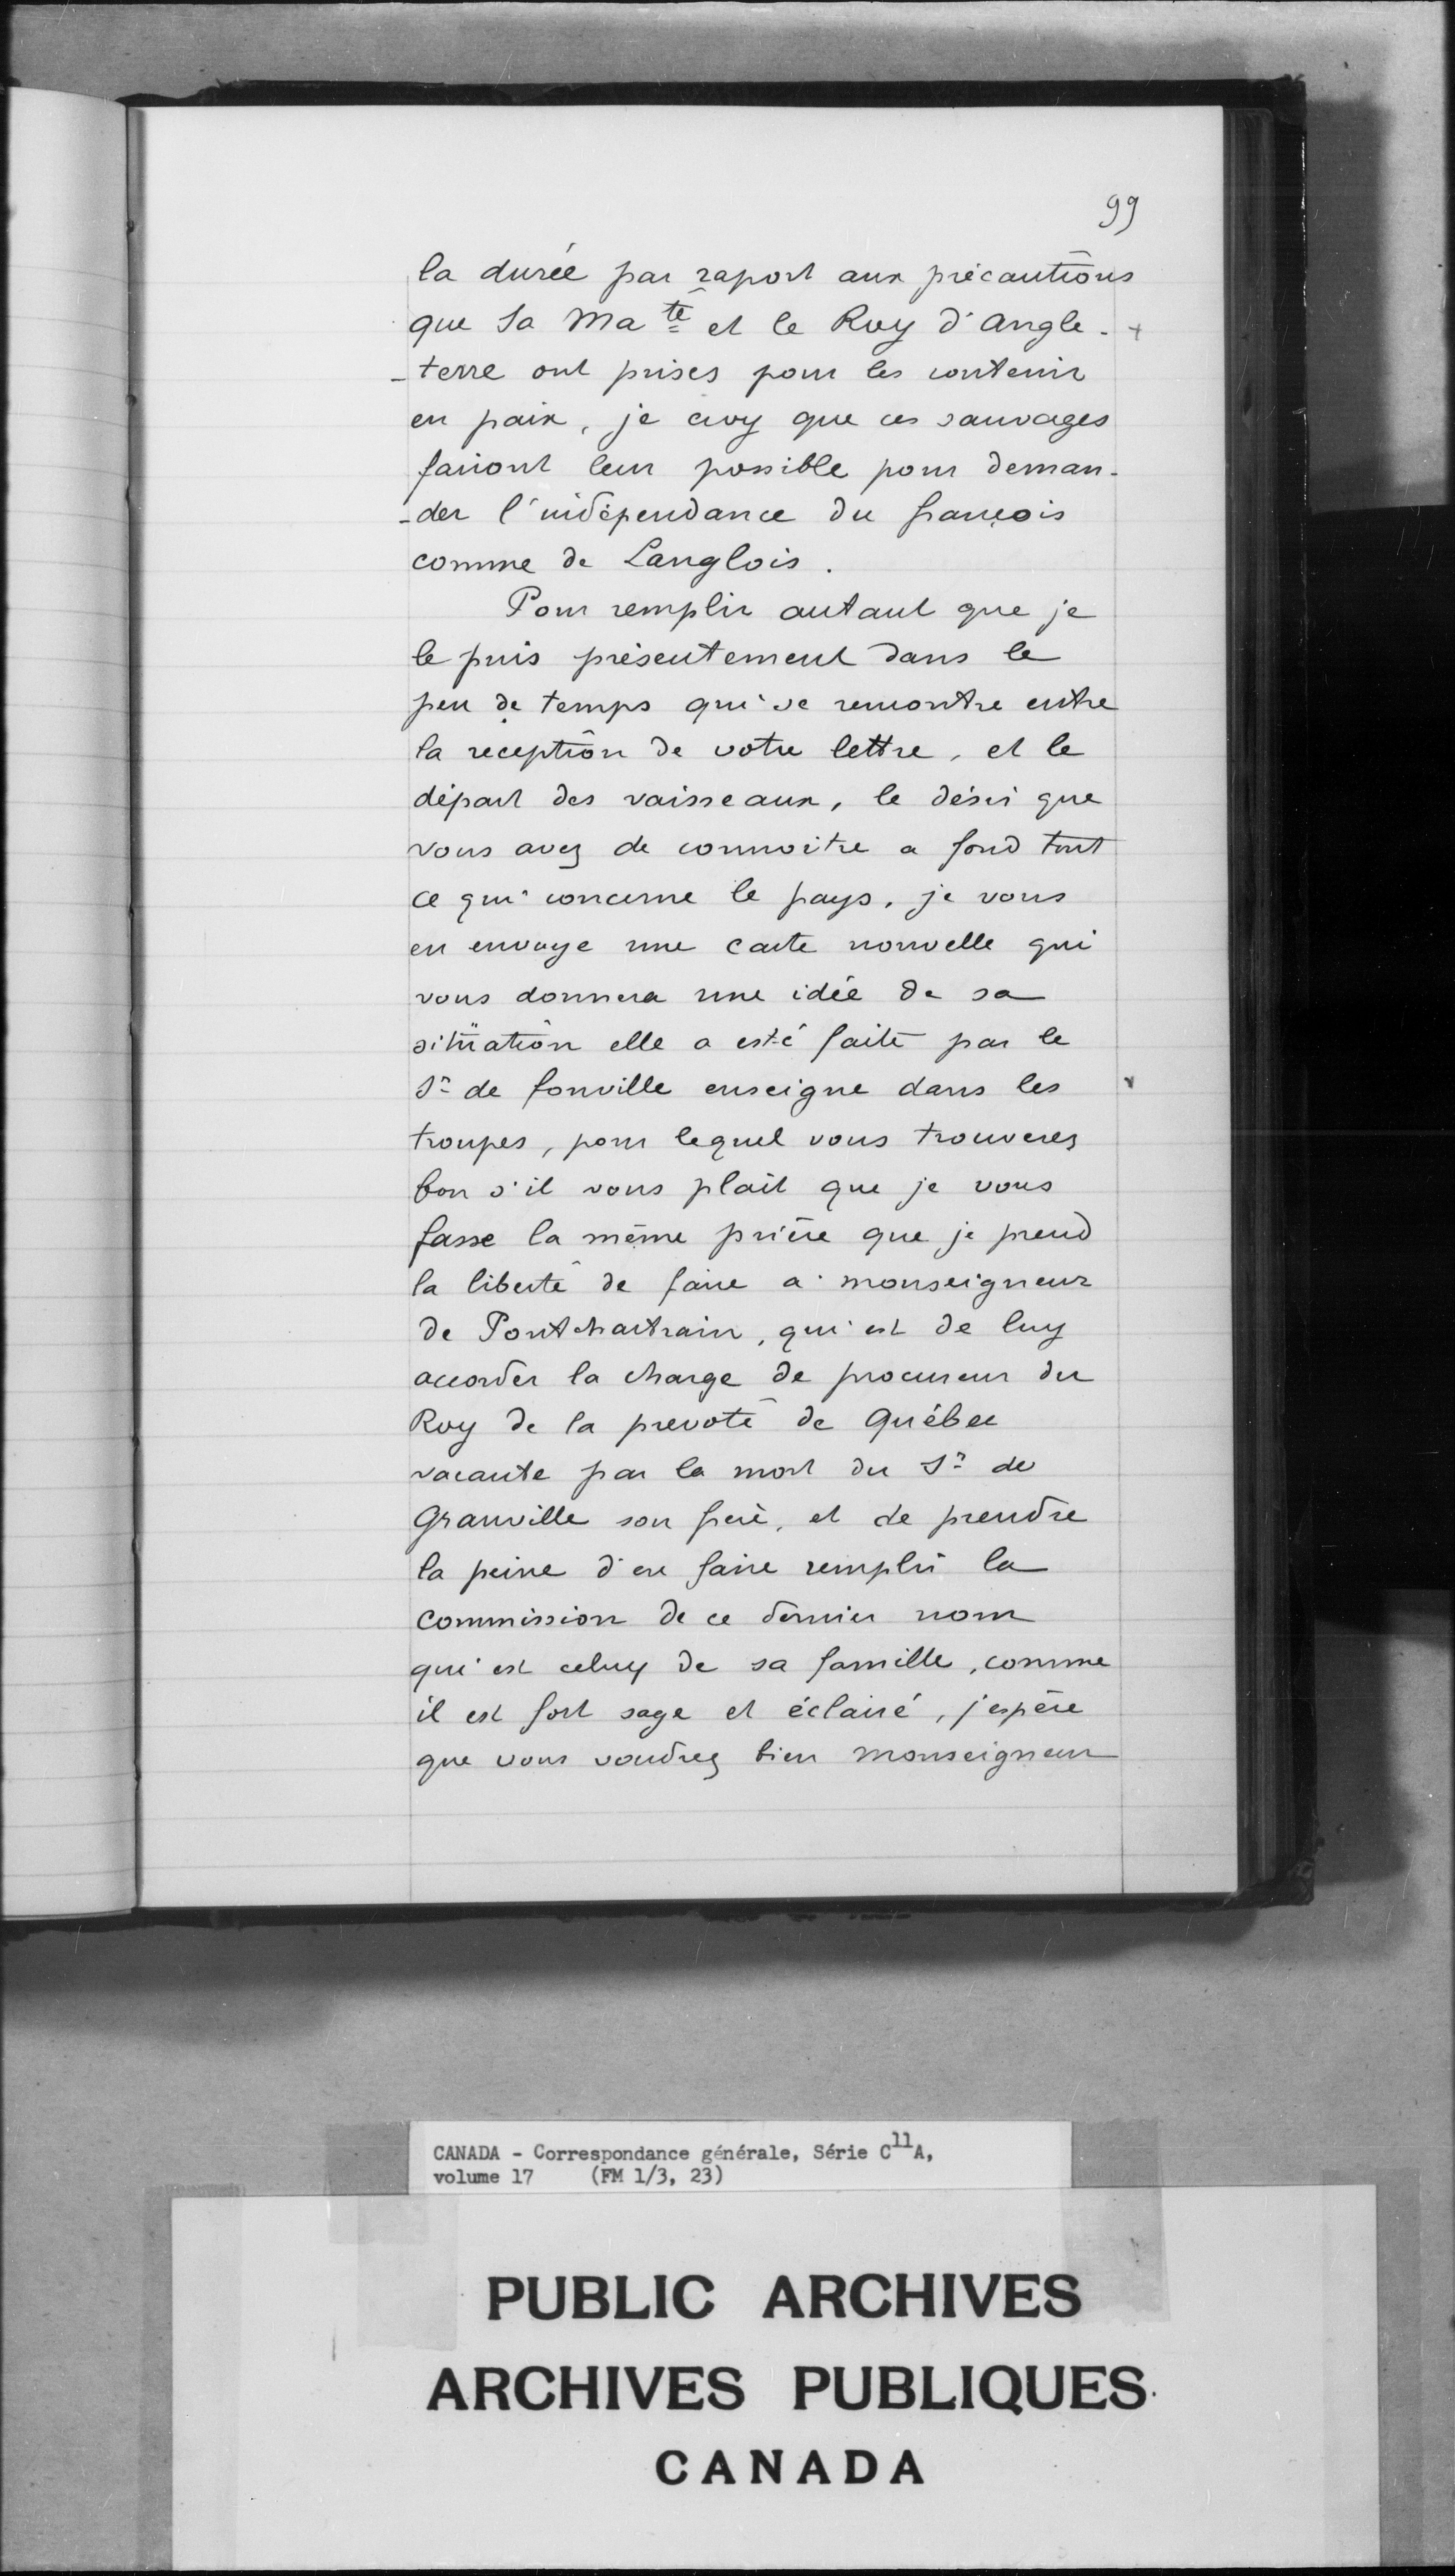 99
la durée par raport aux précautiõns
que Sa Ma té et le Roy d'angle- +
-terre ont prises pour les contenir
en paix, je croy que ces sauvages
fairont leur possible pour deman-
-der l'indépendance du françois
comme de Langlois.
Pour remplir autant que je
le puis présentement dans le
peu de temps qui se rencontre entre
la reception de votre lettre, et le
départ des vaisseaux, le désir que
vous avez de connoitre a fond tout
ce qui concerne le pays, je vous
en envoye une carte nouvelle qui
vous donnera une idée de sa
sitüation elle a esté faite par le
Sr de fonville enseigne dans les
troupes, pour lequel vous trouverez
bon s'il vous plait que je vous
fasse la même prière que je prend
la liberté de faire a monseigneur
de Pontchartrain, qui est de luy
accorder la charge de procureur du
Roy de la prevoté de Québec
vacante par la mort du Sr de
Granville son frere, et de prendre
la peine d'en faire remplir la
commission de ce dernier nom
qui est celuy de sa famille, comme
il est fort sage et éclairé, j'espère
que vous voudrez bien monseigneur
CANADA - Correspondance générale, Série C11A,
volume 17 (FM 1/3, 23)
PUBLIC ARCHIVES
ARCHIVES PUBLIQUES
CANADA